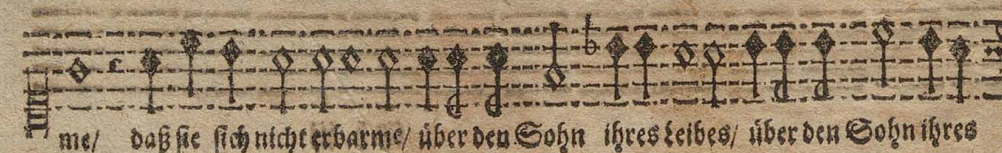 me/ daß sie sich nicht erbarme/ über den Sohn ihres Leibes/ über den Sohn ihres